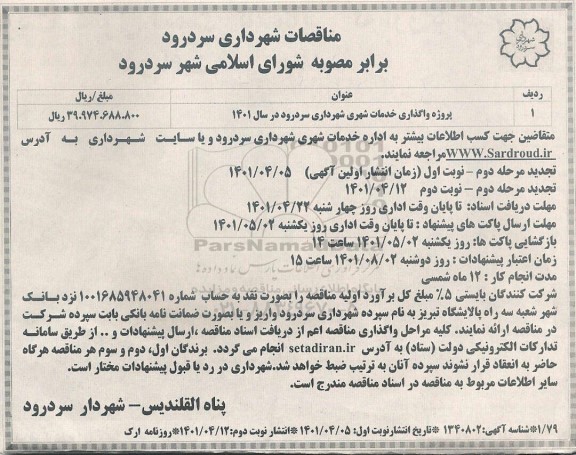 مناقصات شهرداری سردرود
برابر مصوبه شورای اسلامی شهر سردرود
ردیف عنوان مبلغ/ریال
۱ پروژه واگذاری خدمات شهری شهرداری سردرود در سال ۱۴۰۱ ۳۹.۹۷۴.۶۸۸.۸۰۰ ریال
متقاضین جهت کسب اطلاعات بیشتر به اداره خدمات شهری شهرداری سردرود و یا سایت شهرداری به آدرس
WWW.Sardroud.ir مراجعه نمایند.
تجدید مرحله دوم – نوبت اول (زمان انتشار اولین آگهی) ۱۴۰۱/۰۴/۰۵
تجدید مرحله دوم – نوبت دوم ۱۴۰۱/۰۴/۱۲
مهلت دریافت اسناد: تا پایان وقت اداری روز چهار شنبه ۱۴۰۱/۰۴/۲۲
مهلت ارسال پاکت های پیشنهاد : تا پایان وقت اداری روز یکشنبه ۱۴۰۱/۰۵/۰۲
بازگشایی پاکت ها: روز یکشنبه ۱۴۰۱/۰۵/۰۲ ساعت ۱۴
زمان اعتبار پیشنهادات : روز دوشنبه ۱۴۰۱/۰۸/۰۲ ساعت ۱۵
مدت انجام کار : ۱۲ ماه شمسی
شرکت کنندگان بایستی ۵٪ مبلغ کل برآورد اولیه مناقصه را بصورت نقد به حساب شماره ۱۰۰۱۶۸۵۹۴۸۰۴۱ نزد بانک
شهر شعبه سه راه پالایشگاه تبریز به نام سپرده شهرداری سردرود واریز و یا بصورت ضمانت نامه بانکی بابت سپرده شرکت
در مناقصه ارائه نمایند. کلیه مراحل واگذاری مناقصه اعم از دریافت اسناد مناقصه ،ارسال پیشنهادات و .. از طریق سامانه
تدارکات الکترونیکی دولت (ستاد) به آدرس setadiran.ir انجام می گردد. برندگان اول، دوم و سوم هر مناقصه هرگاه
حاضر به انعقاد قرار نشوند سپرده آنان به ترتیب ضبط خواهد شد.شهرداری در رد یا قبول پیشنهادات مختار است.
سایر اطلاعات مربوط به مناقصه در اسناد مناقصه مندرج است.
پناه القلندیس- شهردار سردرود
۱/۷۹*شناسه آگهی:۱۳۴۰۸۰۲ *تاریخ انتشارنوبت اول: ۱۴۰۱/۰۴/۰۵ *انتشار نوبت دوم:۱۴۰۱/۰۴/۱۲*روزنامه ارک
ParsNamadData